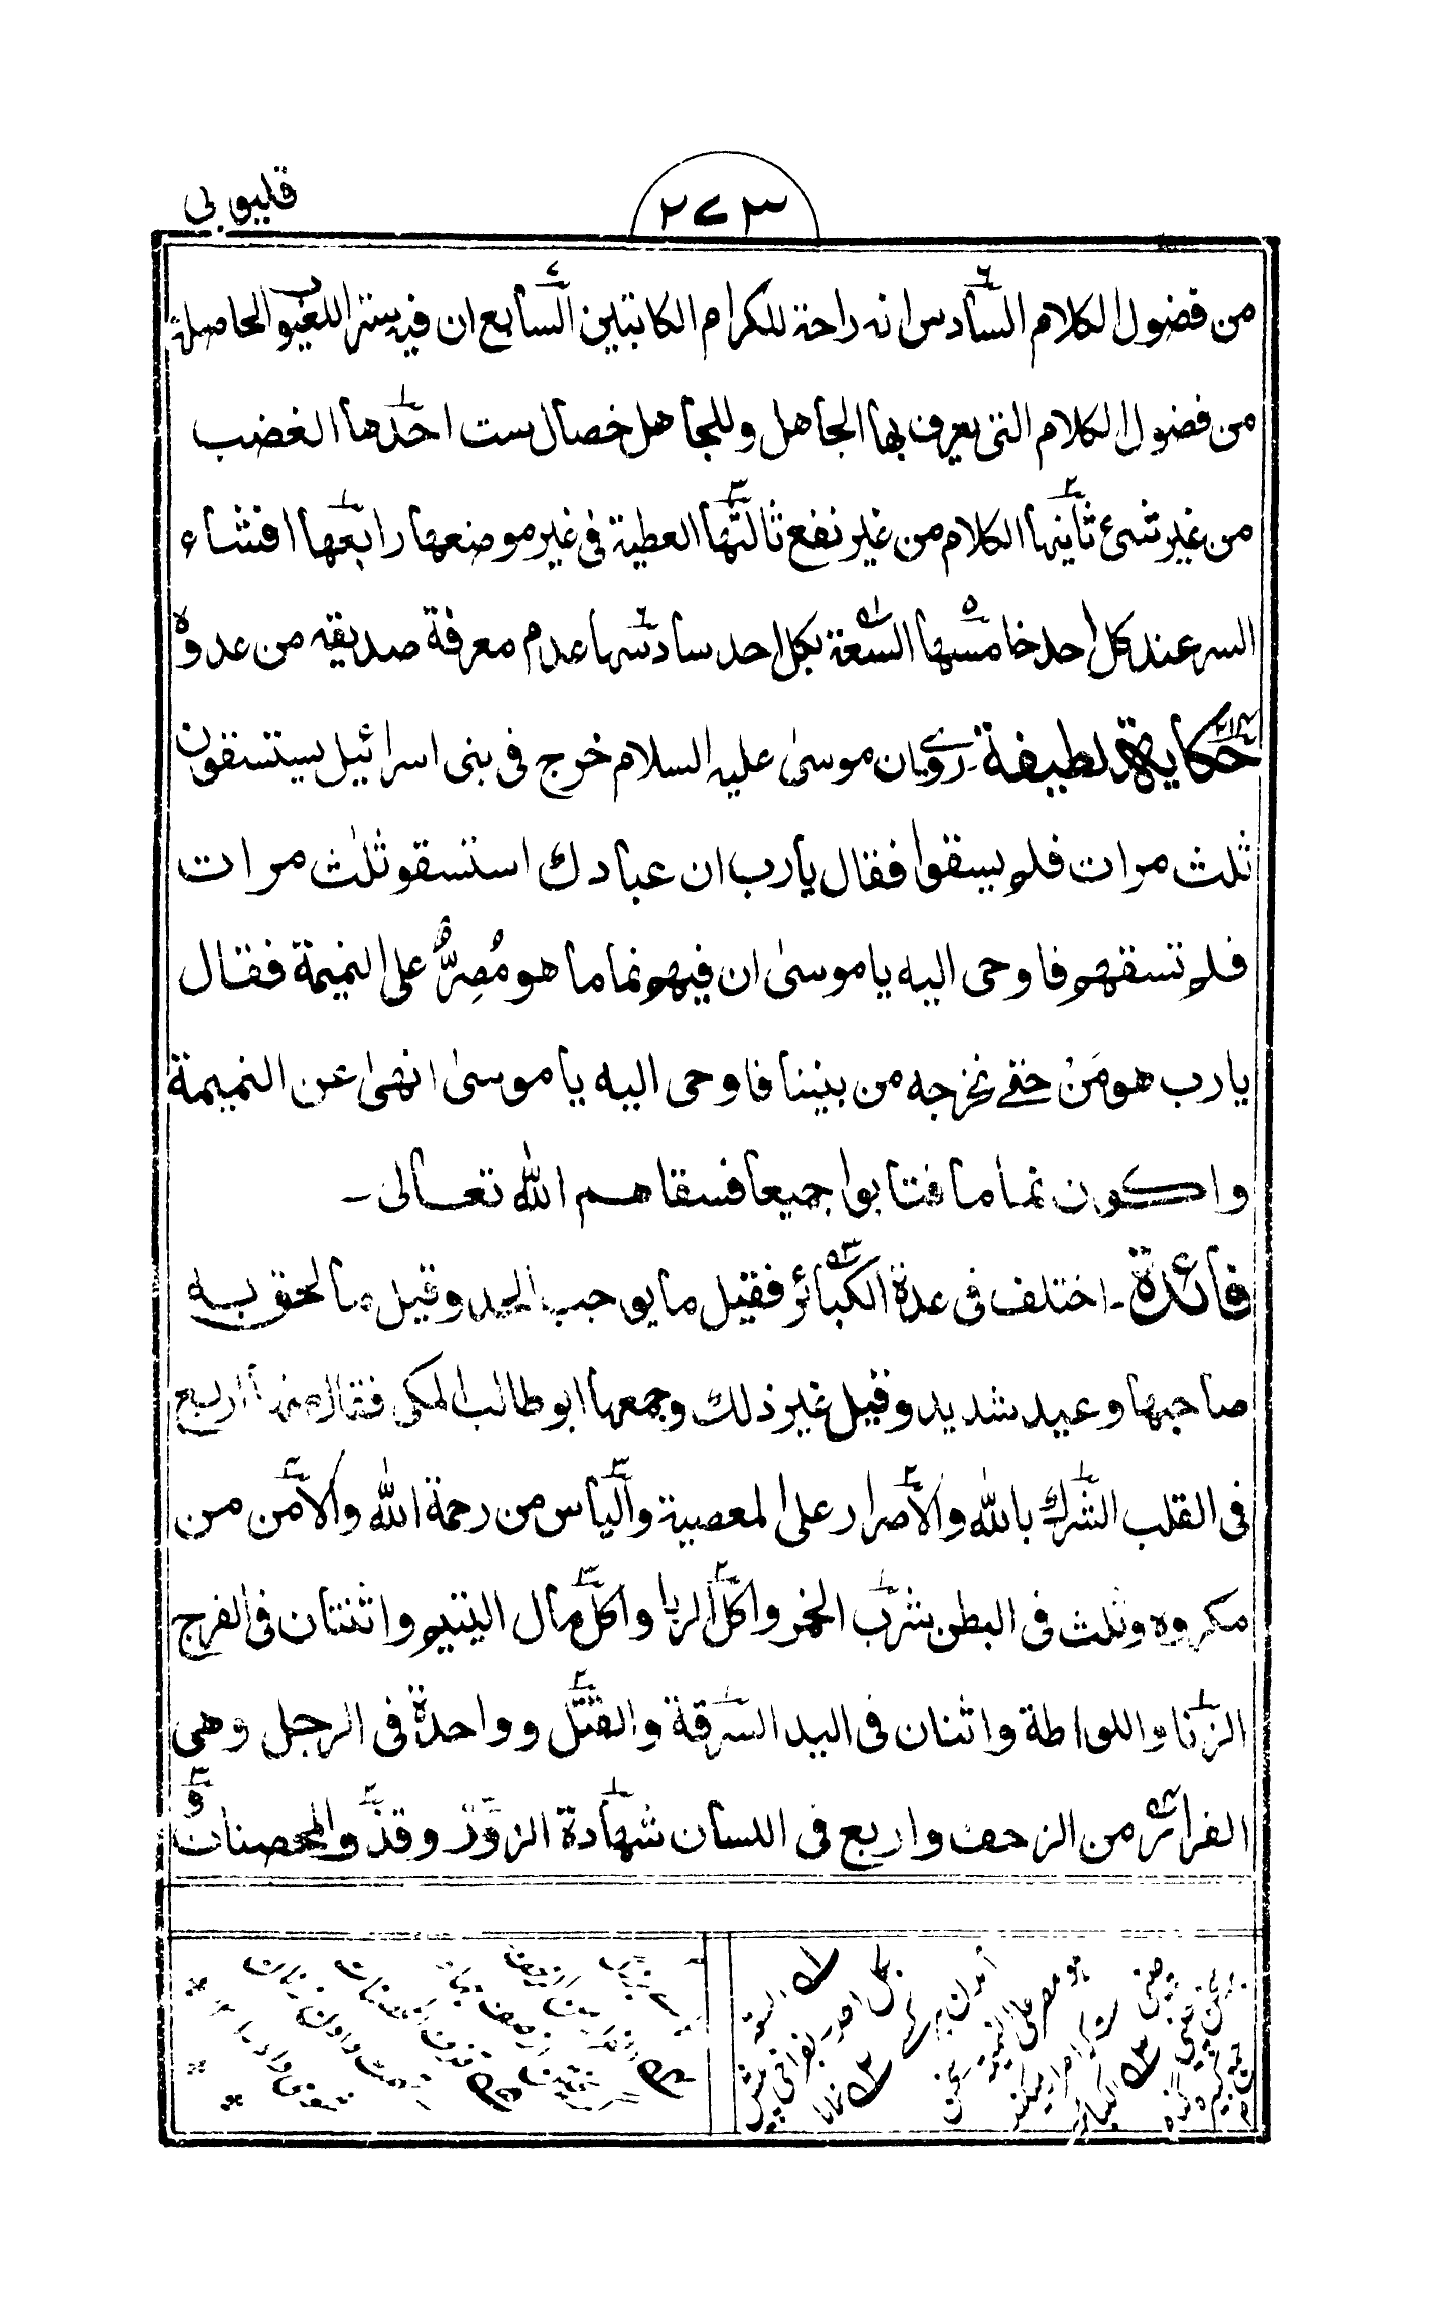 قليوبى
٢٧٣
من فضول الكلام السادس انه راحة للكرام الكاتبين السابع ان فيه ستر اللعيوب الحاصلة
من فضول الكلام التى يعرف بها الجاهل وللجاهل خصال ست احدها الغضب
من غير شىء ثانيها الكلام من غير نفع ثالثها العطية فى غير موضعها رابعها افشاء
السر عند كل احد خامسها السعة بكل احد سادسها عدم معرفة صديقه من عدوه
حكاية لطيفة - روى ان موسىٰ عليه السلام خرج فى بنى اسرائيل يستسقون
ثلث مرات فلم يسقوا فقال يارب ان عبادك استسقو ثلٰث مرات
فلم تسقهم فاوحى اليه يا موسىٰ ان فيهم نماما هو مُصِرٌّ على النميمة فقال
يارب هو مَنْ حتى نخرجه من بيننا فاوحى اليه يا موسىٰ انهىٰ عن النميمة
واكون نماما فتابوا جميعا فسقاهم الله تعالى -
فائدة - اختلف فى عدة الكبائر فقيل ما يوجب الحد وقيل ما لحق به
صاحبها وعيد شديد وقيل غير ذلك وجمعها ابو طالب المكى فقال منها اربع
فى القلب الشرك بالله والاصرار على المعصية والياس من رحمة الله والامن من
مكروه وثلث فى البطن شرب الخمر واكل الربا واكل مال اليتيم واثنتان فى الفرج
الزنا واللواطة واثنان فى اليد السرقة والقتل وواحدة فى الرجل وهى
الفرائر من الزحف واربع فى اللسان شهادة الزور وقذف المحصنات و